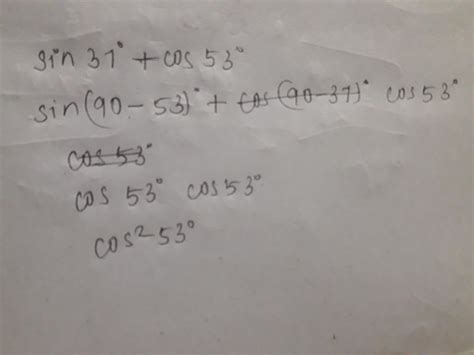 sin 37° + cos 53°
sin (90 - 53)° + cos (90 - 37)° cos 53°
cos 53°
cos 53° cos 53°
cos² 53°